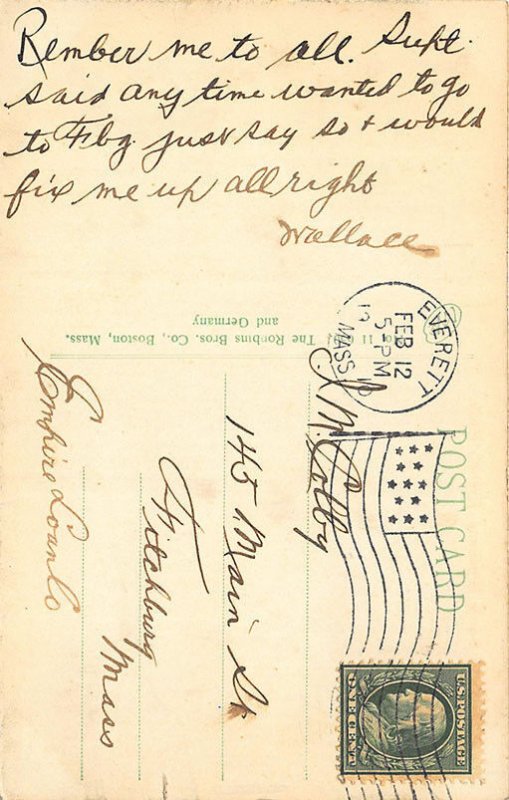 Rember me to all. Supt.
said any time wanted to go
to Fbg just say so + would
fix me up all right
Wallace
The Robbins Bros. Co., Boston, Mass.
and Germany
POST CARD
EVERETT
FEB 12
5 - PM
MASS
U.S. POSTAGE
ONE CENT
J. M. Colby
145 Main St
Fitchburg
Mass
Empire Loan Co